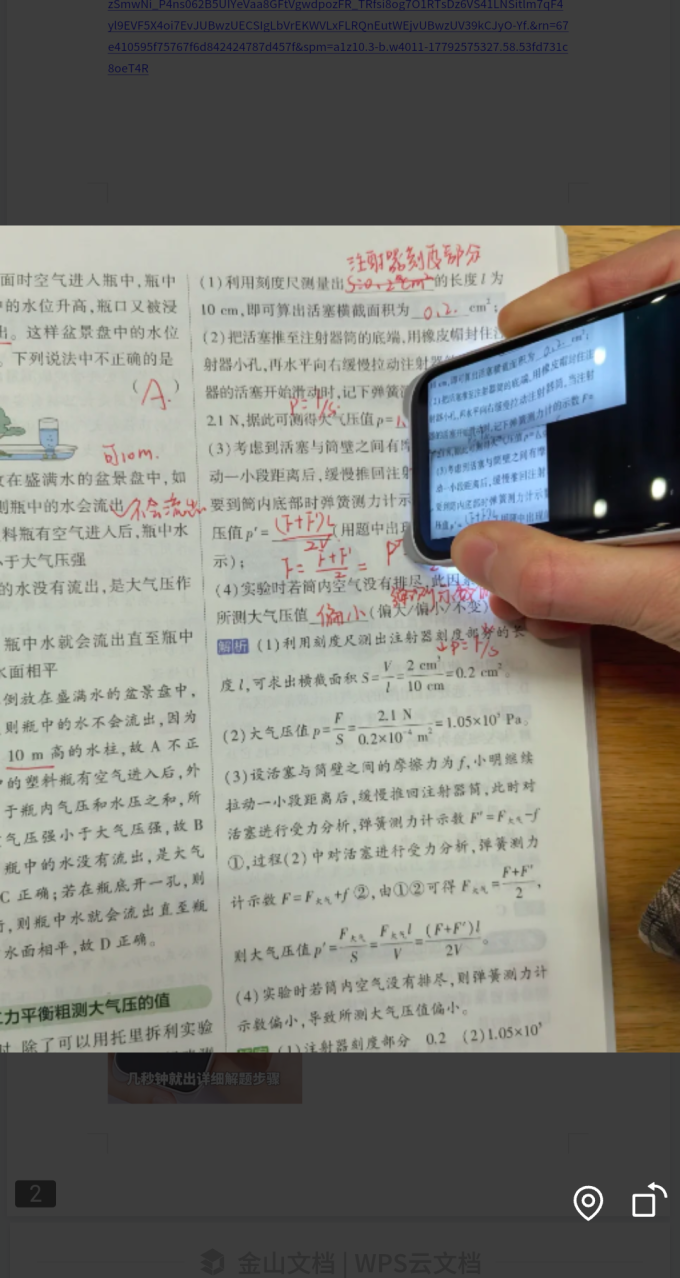 zSmwNi_P4ns062B5UIYeVaa8GFtVgwdpozFR_TRfsi8og7O1RTsDz6VS41LNSitIm7qF4
yl9EVF5X4oi7EvJUBwzUECSIgLbVrEKWVLxFLRQnEutWEjvUBwzUV39kCJyO-Yf.&m=67
e410595f75767f6d842424787d457f&spm=a1z10.3-b.w4011-17792575327.58.53fd731c
8oeT4R
面时空气进入瓶中,瓶中
的水位升高,瓶口又被浸
出。这样盆景盘中的水位
。下列说法中不正确的是
( A. )
可10m.
放在盛满水的盆景盘中,如
则瓶中的水会流出 不会流出
料瓶有空气进入后,瓶中水
小于大气压强
的水没有流出,是大气压作
瓶中水就会流出直至瓶中
水面相平
倒放在盛满水的盆景盘中,
则瓶中的水不会流出,因为
10 m 高的水柱,故 A 不正
中的塑料瓶有空气进入后,外
于瓶内气压和水压之和,所
气压强小于大气压强,故 B
瓶中的水没有流出,是大气
C 正确;若在瓶底开一孔,则
,则瓶中水就会流出直至瓶
水面相平,故 D 正确。
二力平衡粗测大气压的值
时,除了可以用托里拆利实验
注射器刻度部分
(1)利用刻度尺测量出 的长度 l 为
10 cm,即可算出活塞横截面积为 0.2. cm²;
(2)把活塞推至注射器筒的底端,用橡皮帽封住注
射器小孔,再水平向右缓慢拉动注射器
器的活塞开始滑动时,记下弹簧测
P=F/S.
2.1 N,据此可测得大气压值 p=
(3)考虑到活塞与筒壁之间有摩
动一小段距离后,缓慢推回注射
要到筒内底部时弹簧测力计示
压值 p′= (F+F′)L/2V (用题中出现
示); F= F+F′/2 =
(4)实验时若筒内空气没有排尽,此因素
所测大气压值 偏小 (偏大/偏小/不变)
↓P=F/S
解析 (1)利用刻度尺测出注射器刻度部分的长
度 l,可求出横截面积 S=V/l=2 cm³/10 cm=0.2 cm²。
(2)大气压值 p=F/S=2.1 N/0.2×10⁻⁴ m²=1.05×10⁵ Pa。
(3)设活塞与筒壁之间的摩擦力为 f,小明继续
拉动一小段距离后,缓慢推回注射器筒,此时对
活塞进行受力分析,弹簧测力计示数 F′=F大气-f
①,过程(2)中对活塞进行受力分析,弹簧测力
计示数 F=F大气+f ②,由①②可得 F大气=F+F′/2,
则大气压值 p′=F大气/S=F大气l/V=(F+F′)l/2V。
(4)实验时若筒内空气没有排尽,则弹簧测力计
示数偏小,导致所测大气压值偏小。
(1)注射器刻度部分 0.2 (2)1.05×10⁵
10 cm,即可算出活塞横截面积为 0.2. cm²;
(2)把活塞推至注射器筒的底端,用橡皮帽封住注
射器小孔,再水平向右缓慢拉动注射器筒,当注射
器的活塞开始滑动时,记下弹簧测力计的示数 F=
(3)考虑到活塞与筒壁之间有摩
动一小段距离后,缓慢推回注射
要到筒内底部时弹簧测力计示
几秒钟就出详细解题步骤
2
金山文档 | WPS云文档